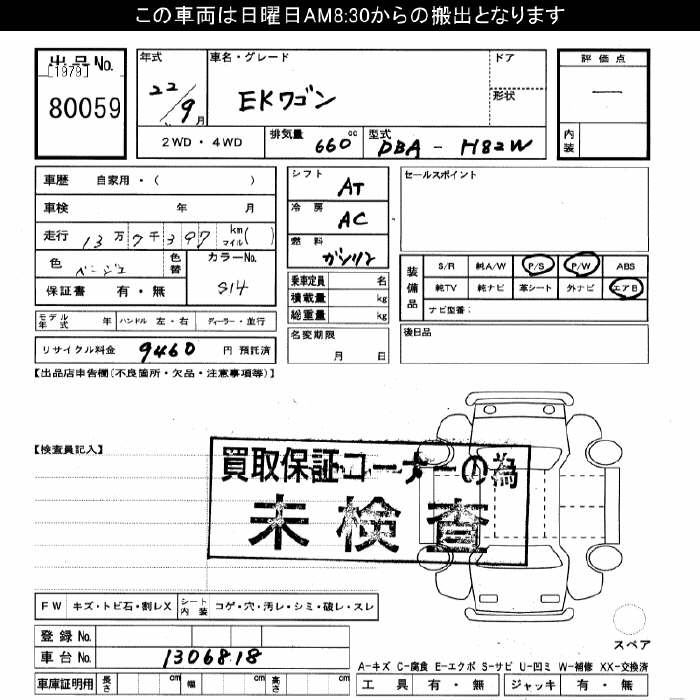 この車両は日曜日AM8:30からの搬出となります
出品No.
[1979]
80059
年式
22/9月
車名・グレード
EKワゴン
ドア
形状
評価点
—
内装
2WD・4WD
排気量 660cc
型式 DBA - H82W
車歴 自家用・(
車検 年 月
走行 13万7千397 km マイル( )
色 ベージュ 色替
カラーNo. S14
保証書 有・無
シフト AT
冷房 AC
燃料 ガソリン
乗車定員 名
積載量 kg
総重量 kg
セールスポイント
装備品
S/R 純A/W P/S P/W ABS
純TV 純ナビ 革シート 外ナビ エアB
ナビ型番:
モデル年式 年 ハンドル 左・右 ディーラー・並行
名変期限 月 日
後日品
リサイクル料金 9460 円 預託済
【出品店申告欄(不良箇所・欠品・注意事項等)】
【検査員記入】
買取保証コーナーの為
未検査
FW キズ・トビ石・割レX シート内装 コゲ・穴・汚レ・シミ・破レ・スレ
スペア
登録No.
車台No. 1306818
A-キズ C-腐食 E-エクボ S-サビ U-凹ミ W-補修 XX-交換済
車庫証明用 長さ cm 幅 cm 高さ cm
工具 有・無 ジャッキ 有・無